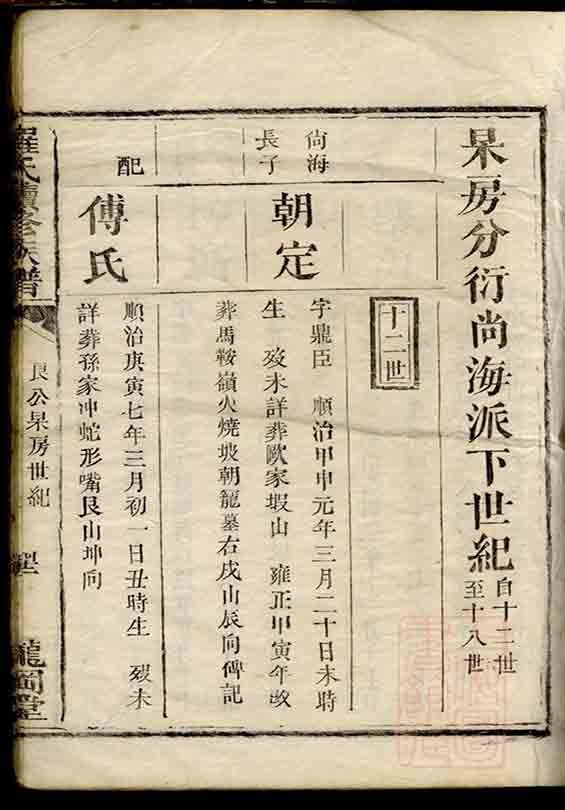 杲房分衍尚海派下世紀自十二世至十八世
十二世
尙海
長子
朝定
字鼎臣 順治甲申元年三月二十日未時
生 歿未詳葬歐家塅山 雍正甲寅年改
葬馬鞍嶺火燒坡朝龍墓右戌山辰向碑記
配
傅氏
順治庚寅七年三月初一日丑時生 歿未
詳葬孫家冲蛇形嘴艮山坤向
羅氏續修族譜
良公杲房世紀